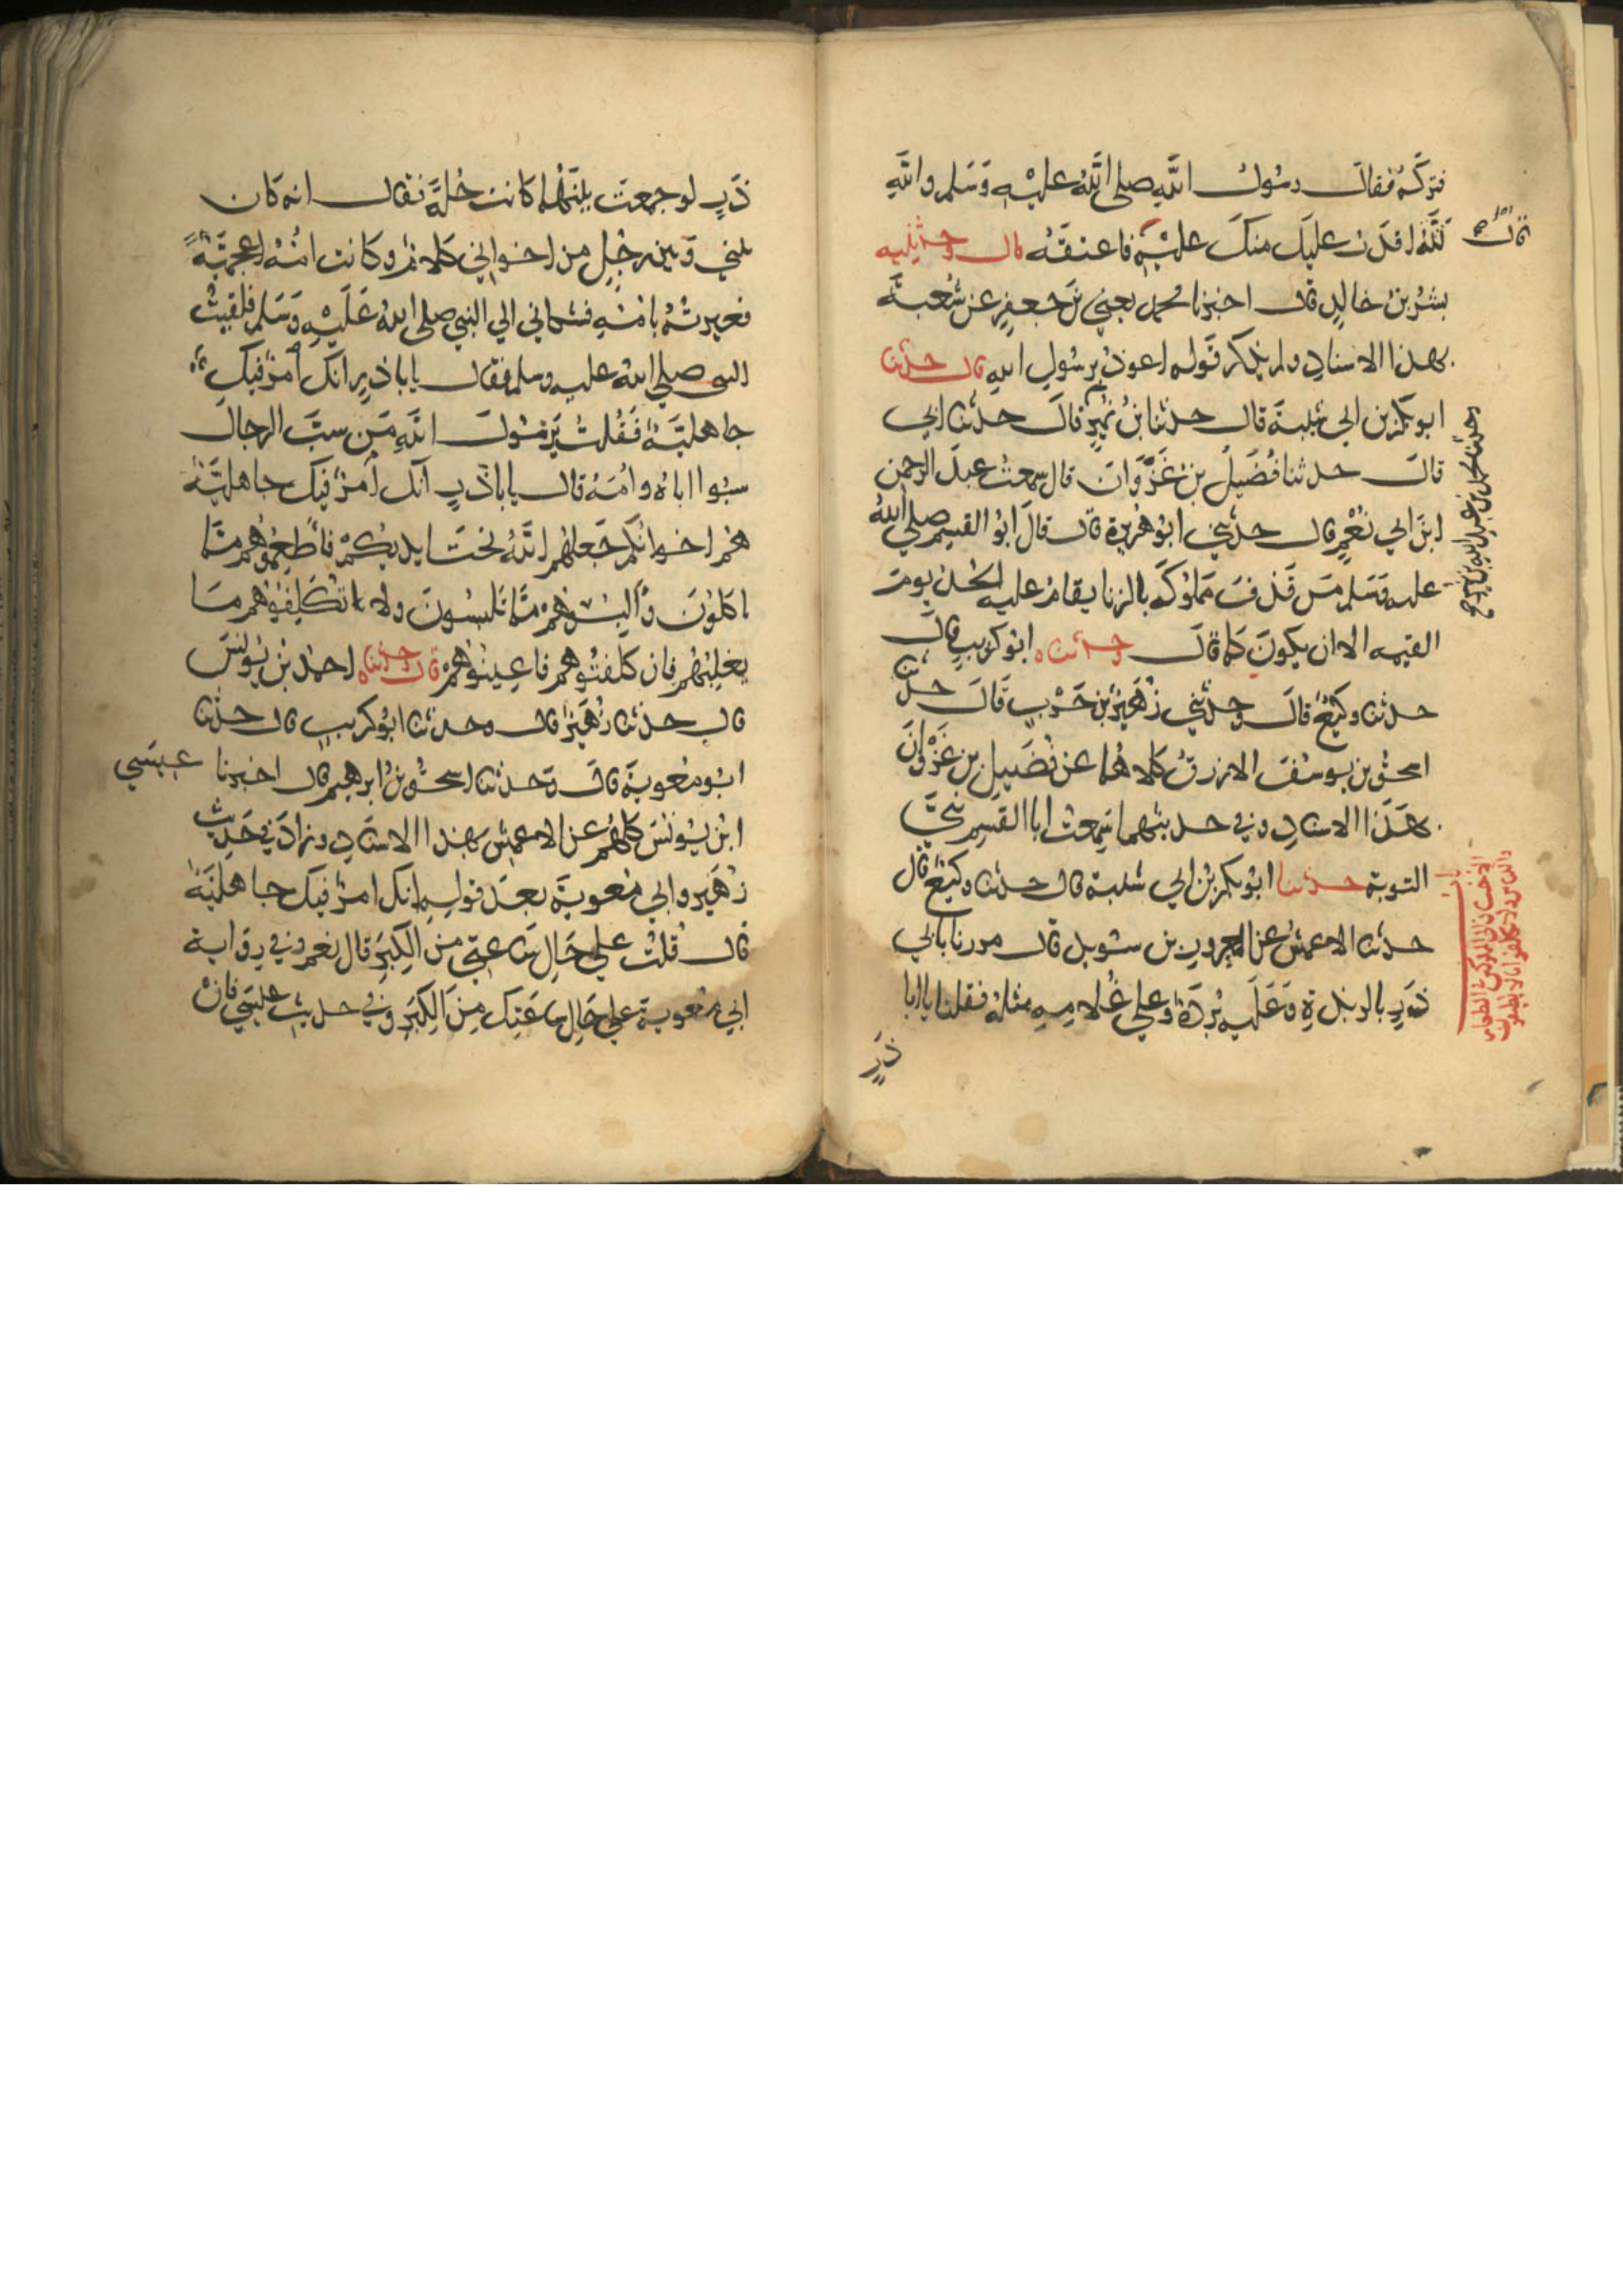 فتركه فقال رسول الله صلى الله عليه وسلم والله
لله اقدر عليك منك عليه فاعتقه قال وحدثنيه
بشر بن خالد قال اخبرنا محمد يعني بن جعفر عن شعبة
بهذا الاسناد ولم يذكر قوله اعوذ برسول الله قال حدثنا
ابو بكر بن ابي شيبة قال حدثنا بن نمير قال حدثنا ابي
قال حدثنا فضيل بن غزوان قال سمعت عبد الرحمن
ابن ابي نعم قال حدثني ابو هريرة قال قال ابو القسم صلى الله
عليه وسلم من قذف مملوكه بالزنا يقام عليه الحد يوم
القيمه الا ان يكون كما قال وحدثناه ابو كريب قال
حدثنا وكيع قال وحدثني زهير بن حرب قال حدثنا
اسحق بن يوسف الازرق كلاهما عن فضيل بن غزوان
بهذا الاسناد وفي حديثهما سمعت ابا القسم نبي
التوبة حدثنا ابو بكر بن ابي شيبة قال حدثنا وكيع قال
حدثنا الاعمش عن المعرور بن سويد قال مررنا بابي
ذر بالربذة وعليه بردة وعلى غلامه مثله فقلنا يا ابا
ذر
قال
وحدثنا محمد بن عبد الله بن نمير
باب
ذر لو جمعت بينهما كانت حلة فقال انه كان
بيني وبين رجل من اخواني كلام وكانت امه اعجمية
فعيرته بامه فشكاني الي النبي صلى الله عليه وسلم فلقيت
النبي صلى الله عليه وسلم فقال يا باذر انك امرؤ فيك
جاهلية فقلت يرسول الله من سب الرجال
سبوا اباه وامه قال يا باذر انك امرؤ فيك جاهلية
هم اخوانكم جعلهم الله تحت ايديكم فاطعموهم مما
تاكلون والبسوهم مما تلبسون ولا تكلفوهم ما
يغلبهم فان كلفتموهم فاعينوهم قال وحدثناه احمد بن يونس
قال حدثنا زهير قال وحدثنا ابو كريب قال حدثنا
ابو معوية قال وحدثنا اسحق بن ابرهيم قال اخبرنا عيسي
ابن يونس كلهم عن الاعمش بهذا الاسناد وزاد في حديث
زهير وابي معوية بعد قوله انك امرؤ فيك جاهلية
قال قلت علي حال ساعتي من الكبر قال نعم وفي رواية
ابي معوية علي حال ساعتك من الكبر وفي حديث عيسي فان